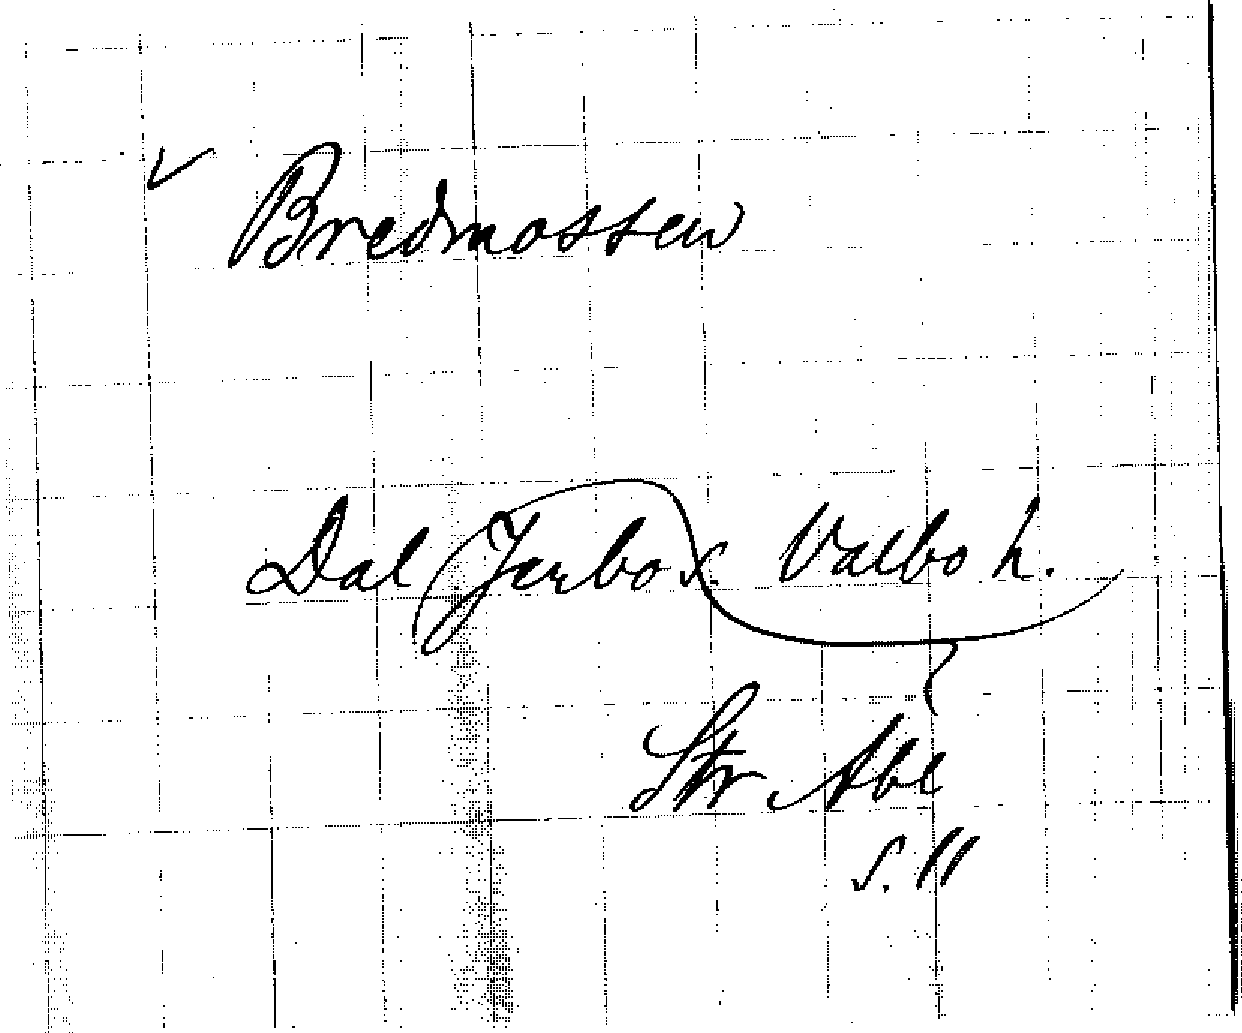 ✓ Bredmossen
Dal Jarbo s. Valbo h.
Str. Abl
s. 11